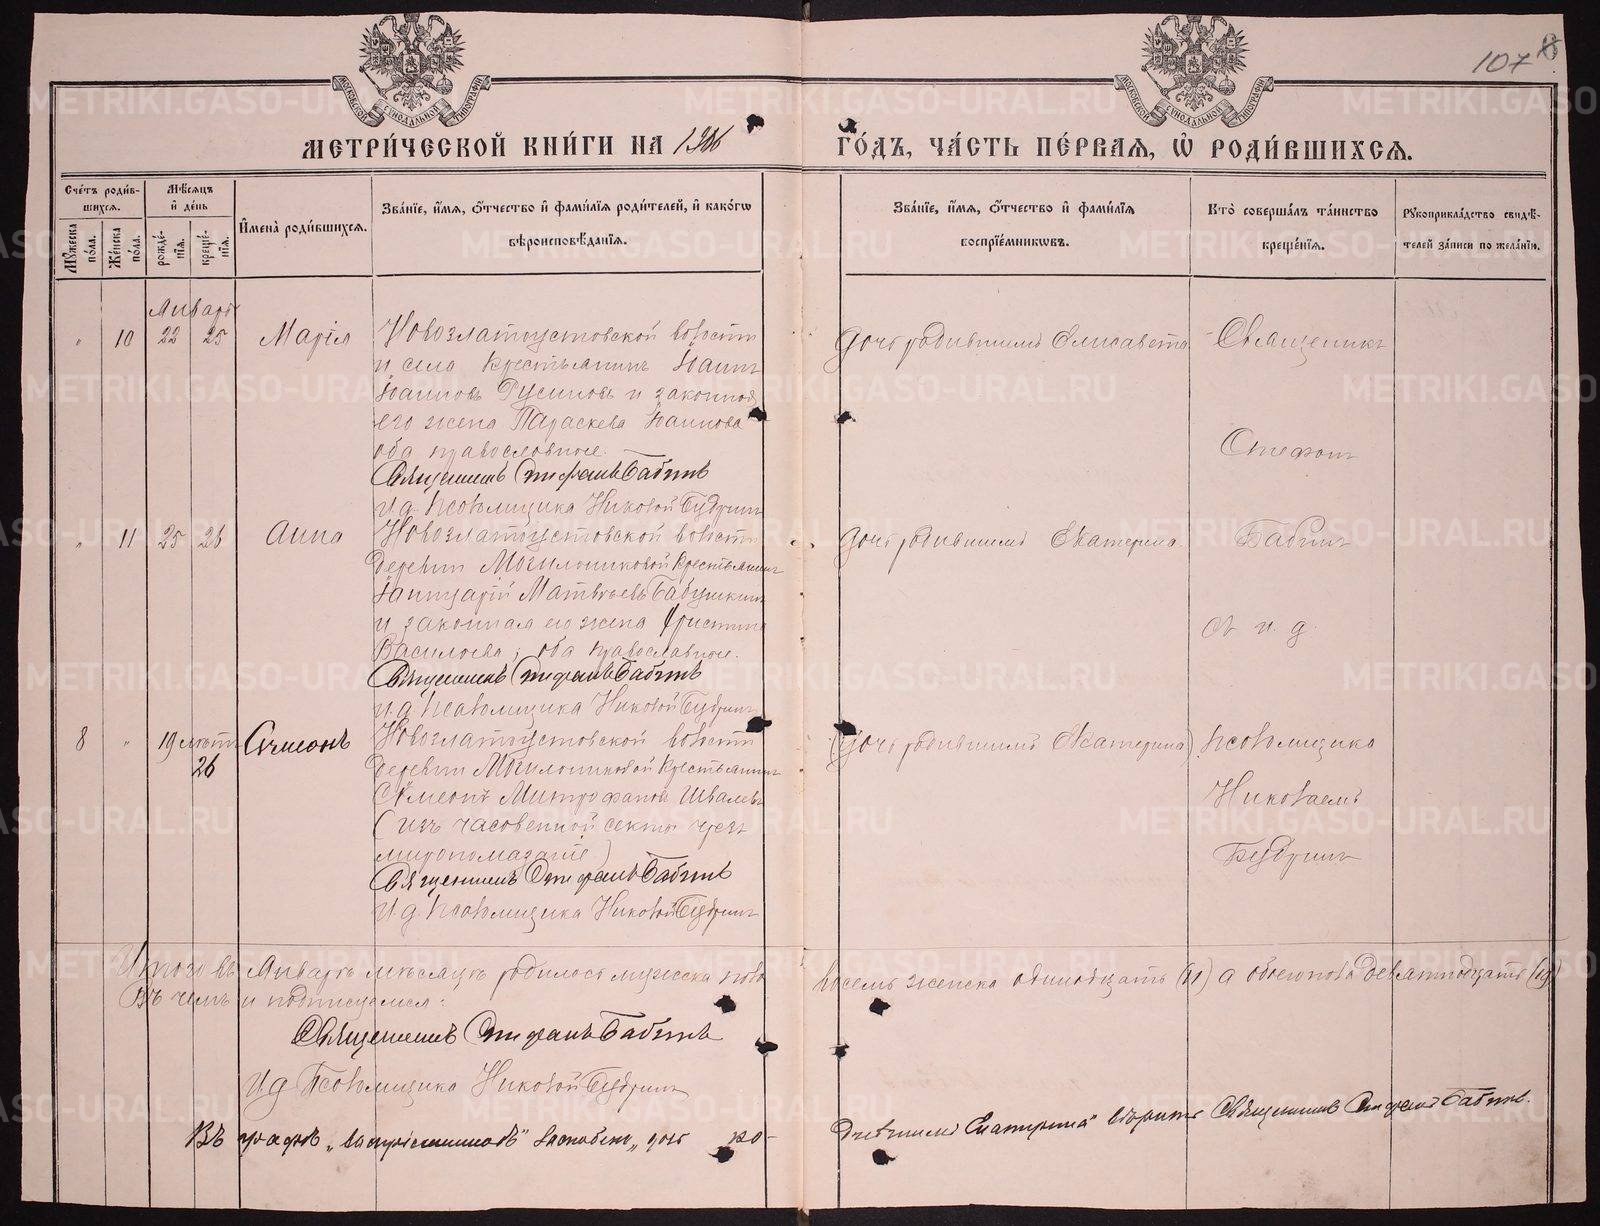 107
МОСКОВСКОЙ СѴНОДАЛЬНОЙ ТИПОГРАФІИ
МОСКОВСКОЙ СѴНОДАЛЬНОЙ ТИПОГРАФІИ
МЕТРИ́ЧЕСКОЙ КНИ́ГИ НА 1906 ГО́ДЪ, ЧА́СТЬ ПЕ́РВАЯ, Ѡ҆ РОДИ́ВШИХСЯ.
Сче́тъ роди́вшихся.
Мѣ́сяцъ и҆ де́нь
И҆мена̀ роди́вшихся.
Зва́нїе, и҆́мя, ѻ҆́тчество и҆ фами́лїя роди́телей, и҆ како́гѡ вѣроисповѣ́данїя.
Зва́нїе, и҆́мя, ѻ҆́тчество и҆ фами́лїя воспрїе́мникѡвъ.
Кто̀ соверша́лъ та́инство креще́нїя.
Рꙋкоприкла́дство свидѣ́телей за́писи по жела́нїю.
Мꙋ́жеска по́ла.
Же́нска по́ла.
рожде́нїя.
креще́нїя.
Январь
" 10 22 25 Марія
Новозлатоустовской волости
и села крестьянинъ Іоаннъ
Іоанновъ Русиновъ и законная
его жена Параскева Іоаннова
оба православные.
Священникъ Стефанъ Бабинъ
И. д. псаломщика Николай Бубринъ
Дочь родившимъ Елисавета
Священникъ
Стефанъ
" 11 25 26 Анна
Новозлатоустовской волости
деревни Могильниковой крестьянинъ
Іаннуарій Матвѣевъ Бабушкинъ
и законная его жена Христина
Васильева, оба православные.
Священникъ Стефанъ Бабинъ
И. д. псаломщика Николай Бубринъ
Дочь родившимъ Екатерина
Бабинъ
съ и. д.
8 " 19 26 Сѵмеонъ
Новозлатоустовской волости
деревни Могильниковой крестьянинъ
Сѵмеонъ Митрофановъ Швалевъ
(изъ часовенной секты чрезъ
миропомазаніе)
Священникъ Стефанъ Бабинъ
И. д. псаломщика Николай Бубринъ
(Дочь родившимъ Екатерина)
псаломщика
Николаемъ
Бубринъ
Итого въ Январѣ мѣсяцѣ родилось мужеска пола восемь женска одиннадцать (11) а обоего пола девятнадцать (19)
Въ чемъ и подписуемся:
Священникъ Стефанъ Бабинъ
И. д. Псаломщика Николай Бубринъ
Въ графѣ „воспріемниковъ" дочь ро-
Екатерина" вѣрить Священникъ Стефанъ Бабинъ.
METRIKI.GASO-URAL.RU